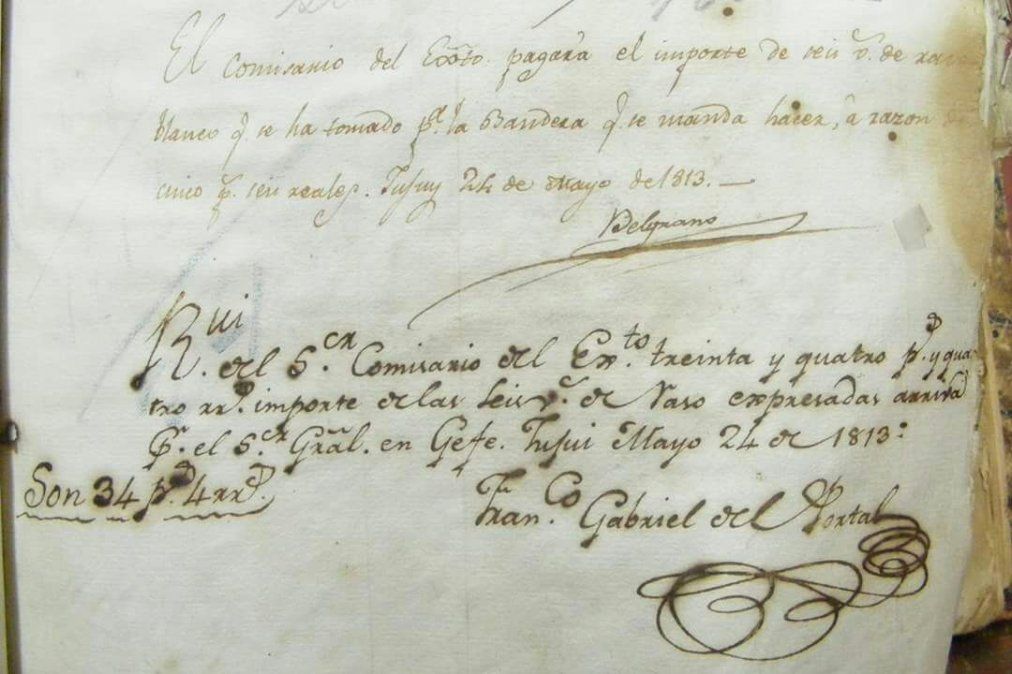 El Comisario del Exto. pagará el importe de seis vs. de raso
blanco q. se ha tomado pa. la Bandera q. se manda hacer, â razon de
cinco ps. seis reales. Jujuy 24 de Mayo de 1813.—
Belgrano
Rui. del Sor. Comisario del Exto. treinta y quatro ps. y qua-
tro rrs. importe de las seis vs. de Raso expresadas arriva
Pr. el Sor. Gral. en Gefe. Jujui Mayo 24 de 1813:
Son 34 ps. 4 rrs.
Franco. Gabriel del Portal